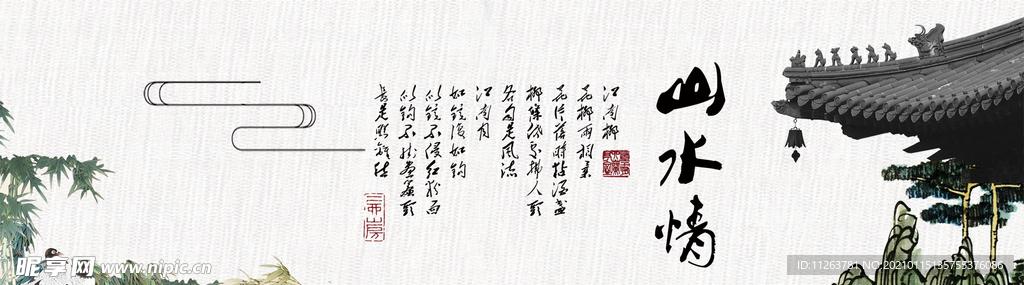 山水情
江南柳
花柳两相柔
花片落时粘酒盏
柳条低处拂人头
各自是风流
江南月
如镜复如钩
似镜不侵红粉面
似钩不挂画帘头
长是照离愁
昵享网 www.nipic.cn
ID:11263781 NO:20210115135753376086